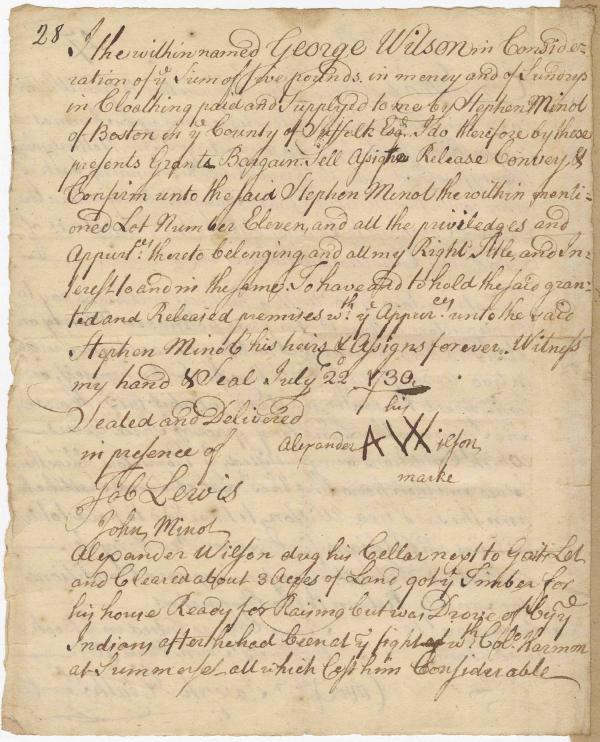 28
I the within named George Wilson in Conside=
ration of ye Sum of five pounds in money and of Sundrys
in Cloathing paid and Supplyed to me by Stephen Minot
of Boston in ye County of Suffolk Esqr. I do therefore by these
presents Grant Bargain Sell Assign Release Convey &
Confirm unto the said Stephen Minot the within menti=
oned Lot Number Eleven, and all the priviledges and
Appurces thereto belonging and all my Right Title, and in=
terest to and in the same. To have and to hold the said gran=
ted and Released premises wth ye Appurces unto the said
Stephen Minot his heirs & Assigns forever. Witness
my hand & Seal July 22d 1730
Sealed and Delivered his
in presence of Alexander AW Wilson
marke
Job Lewis
John Minot
Alexander Wilson dug his Cellar next to Lot
and Cleared about 3 Acres of Land got ye Timber for
his house Ready for Raising but was Drove of by ye
Indians after he had been at ye fight wth Colo. Harmon
at Summerset all which Cost him Considerable